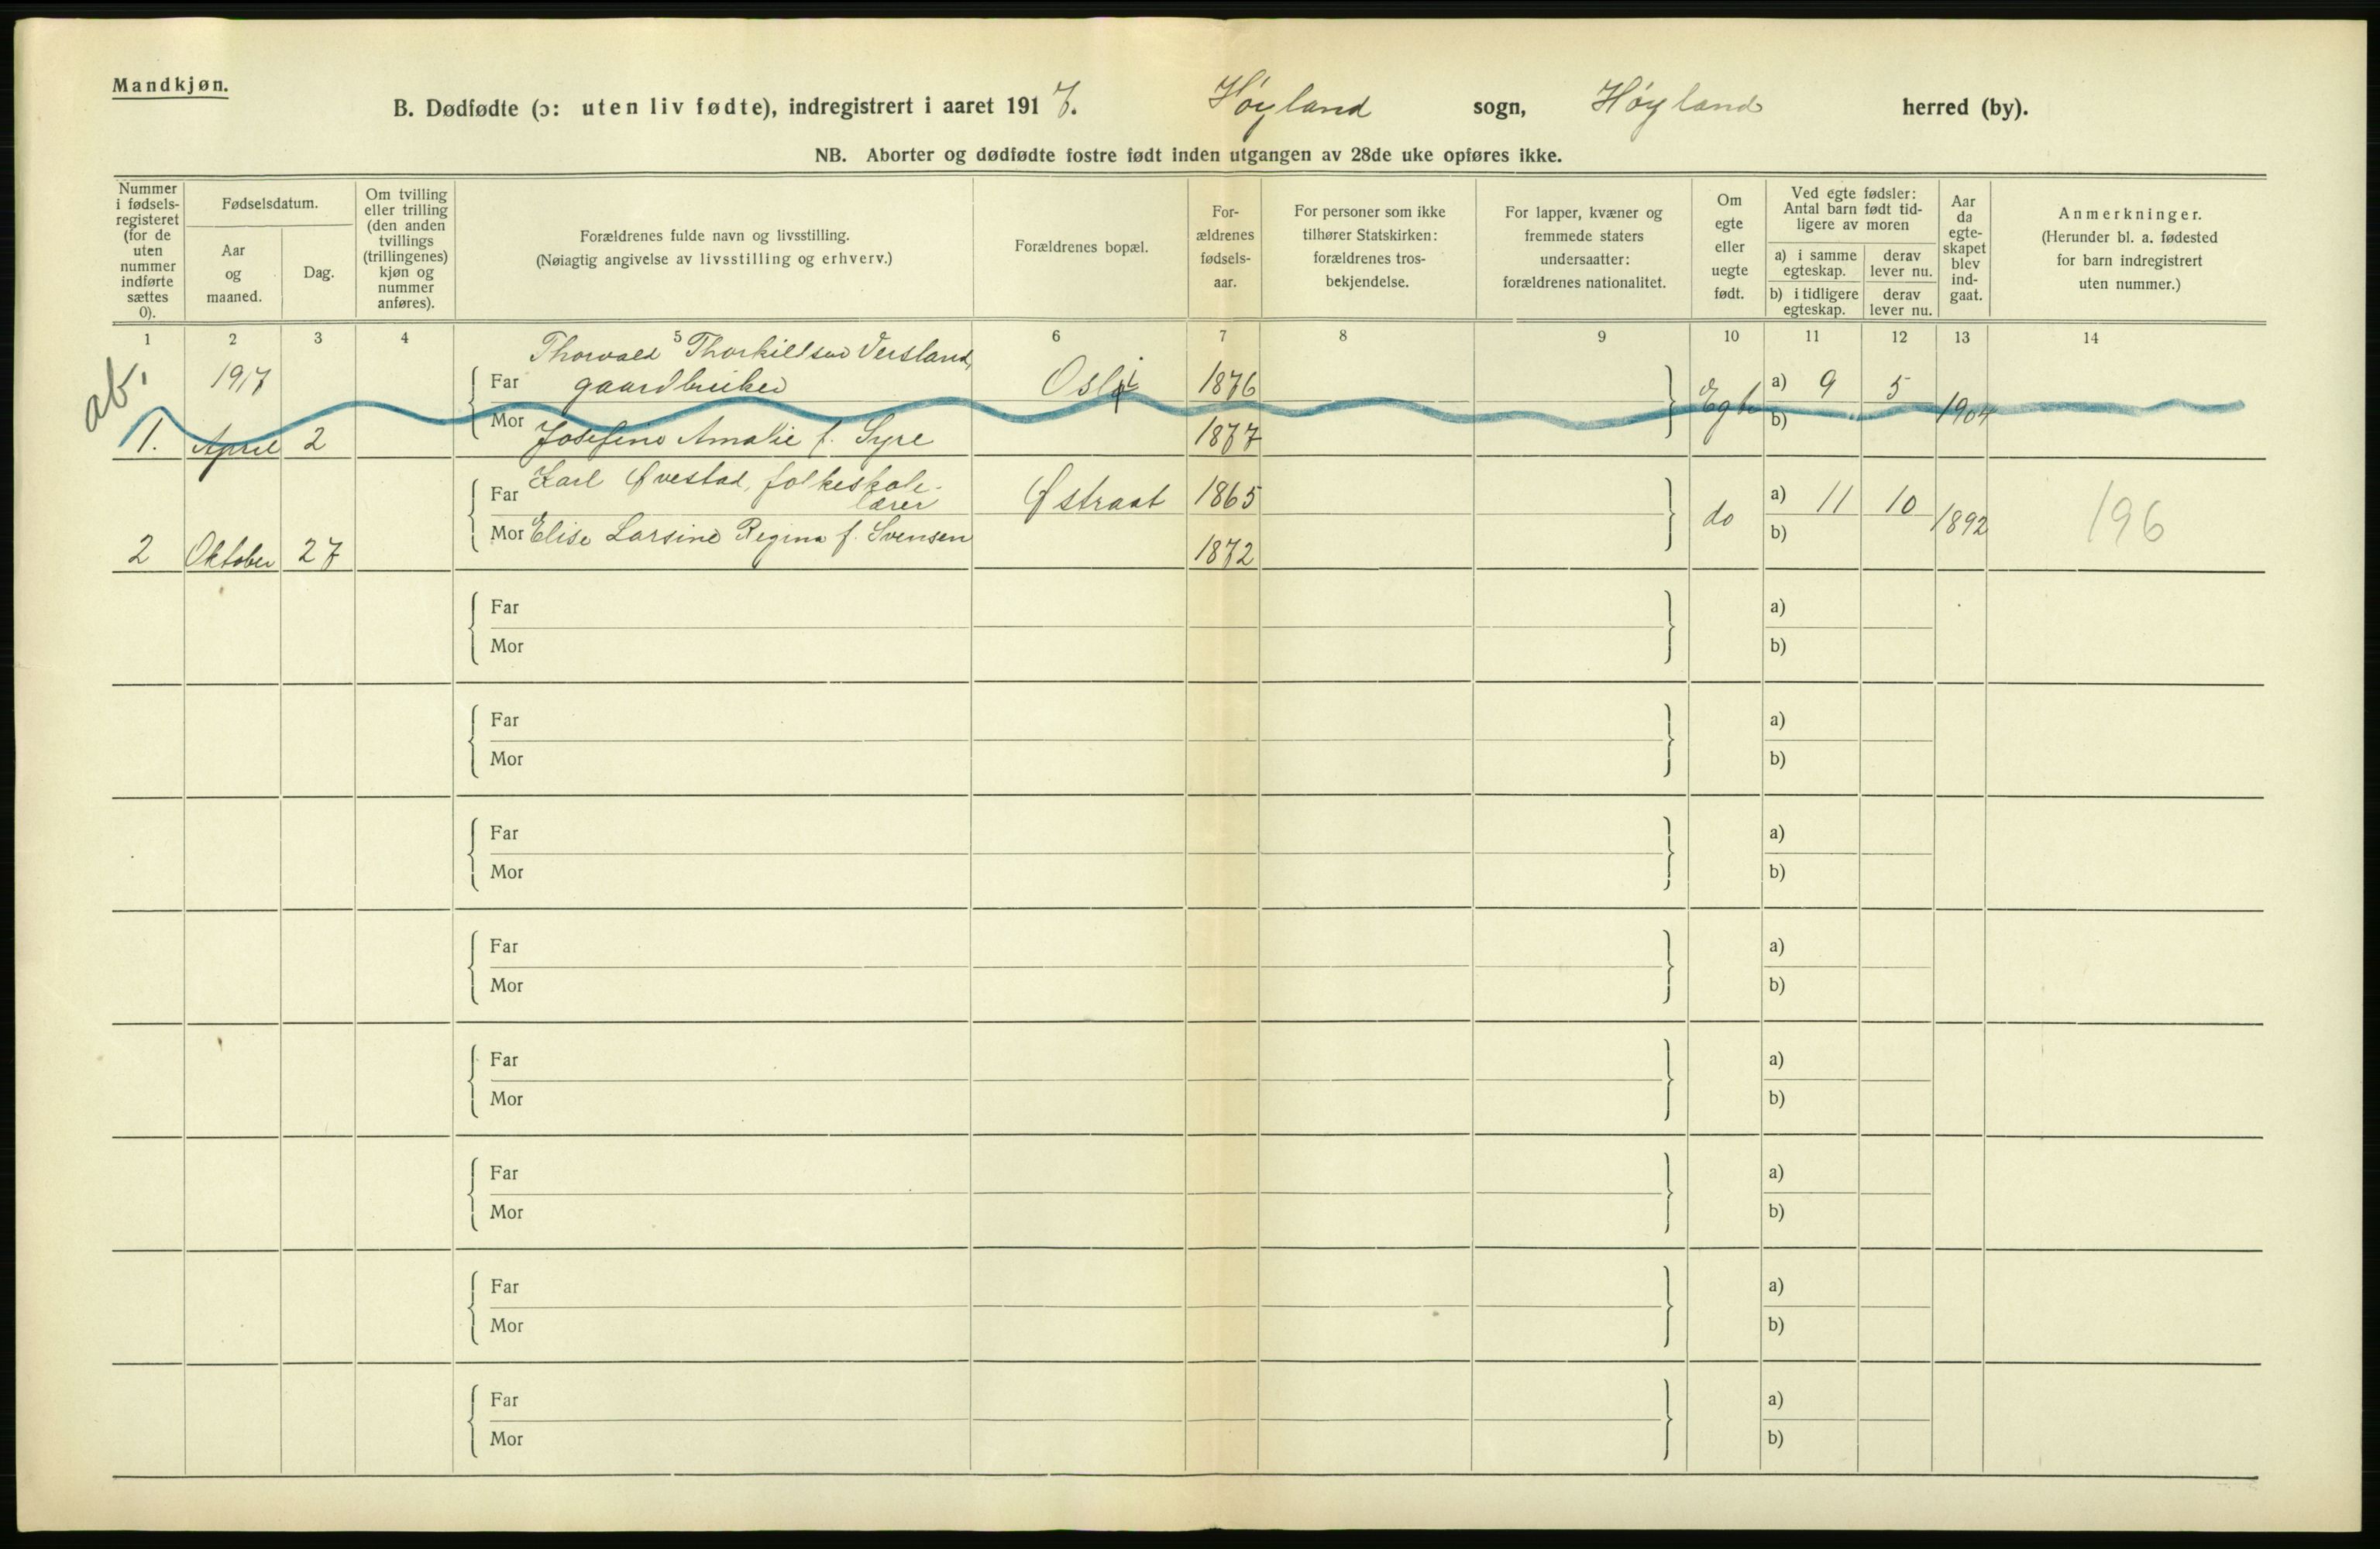 Mandkjøn.
B. Dødfødte (ɔ: uten liv fødte), indregistrert i aaret 1917. Høyland sogn, Høyland herred (by).
NB. Aborter og dødfødte fostre født inden utgangen av 28de uke opføres ikke.
Nummer
i fødsels-
registeret
(for de
uten
nummer
indførte
sættes
0).
Fødselsdatum.
Aar
og
maaned.
Dag.
Om tvilling
eller trilling
(den anden
tvillings
(trillingenes)
kjøn og
nummer
anføres).
Forældrenes fulde navn og livsstilling.
(Nøiagtig angivelse av livsstilling og erhverv.)
Forældrenes bopæl.
For-
ældrenes
fødsels-
aar.
For personer som ikke
tilhører Statskirken:
forældrenes tros-
bekjendelse.
For lapper, kvæner og
fremmede staters
undersaatter:
forældrenes nationalitet.
Om
egte
eller
uegte
født.
Ved egte fødsler:
Antal barn født tid-
ligere av moren
a) i samme
egteskap.
derav
lever nu.
b) i tidligere
egteskap.
derav
lever nu.
Aar
da
egte-
skapet
blev
ind-
gaat.
Anmerkninger.
(Herunder bl. a. fødested
for barn indregistrert
uten nummer.)
1 2 3 4 5 6 7 8 9 10 11 12 13 14
ab.
Thorvald Thorkillsen Versland,
1917 Far gaardbruker 1876 a) 9 5
Egte 1904
1. April 2 Mor Josefine Amalie f. Syre 1877 b)
Karl Øvestad, folkeskole-
Far lærer Østraat 1865 a) 11 10
do 1892 196
2 Oktober 27 Mor Elise Larsine Regina f. Svensen 1872 b)
Far a)
Mor b)
Far a)
Mor b)
Far a)
Mor b)
Far a)
Mor b)
Far a)
Mor b)
Far a)
Mor b)
Far a)
Mor b)
Far a)
Mor b)